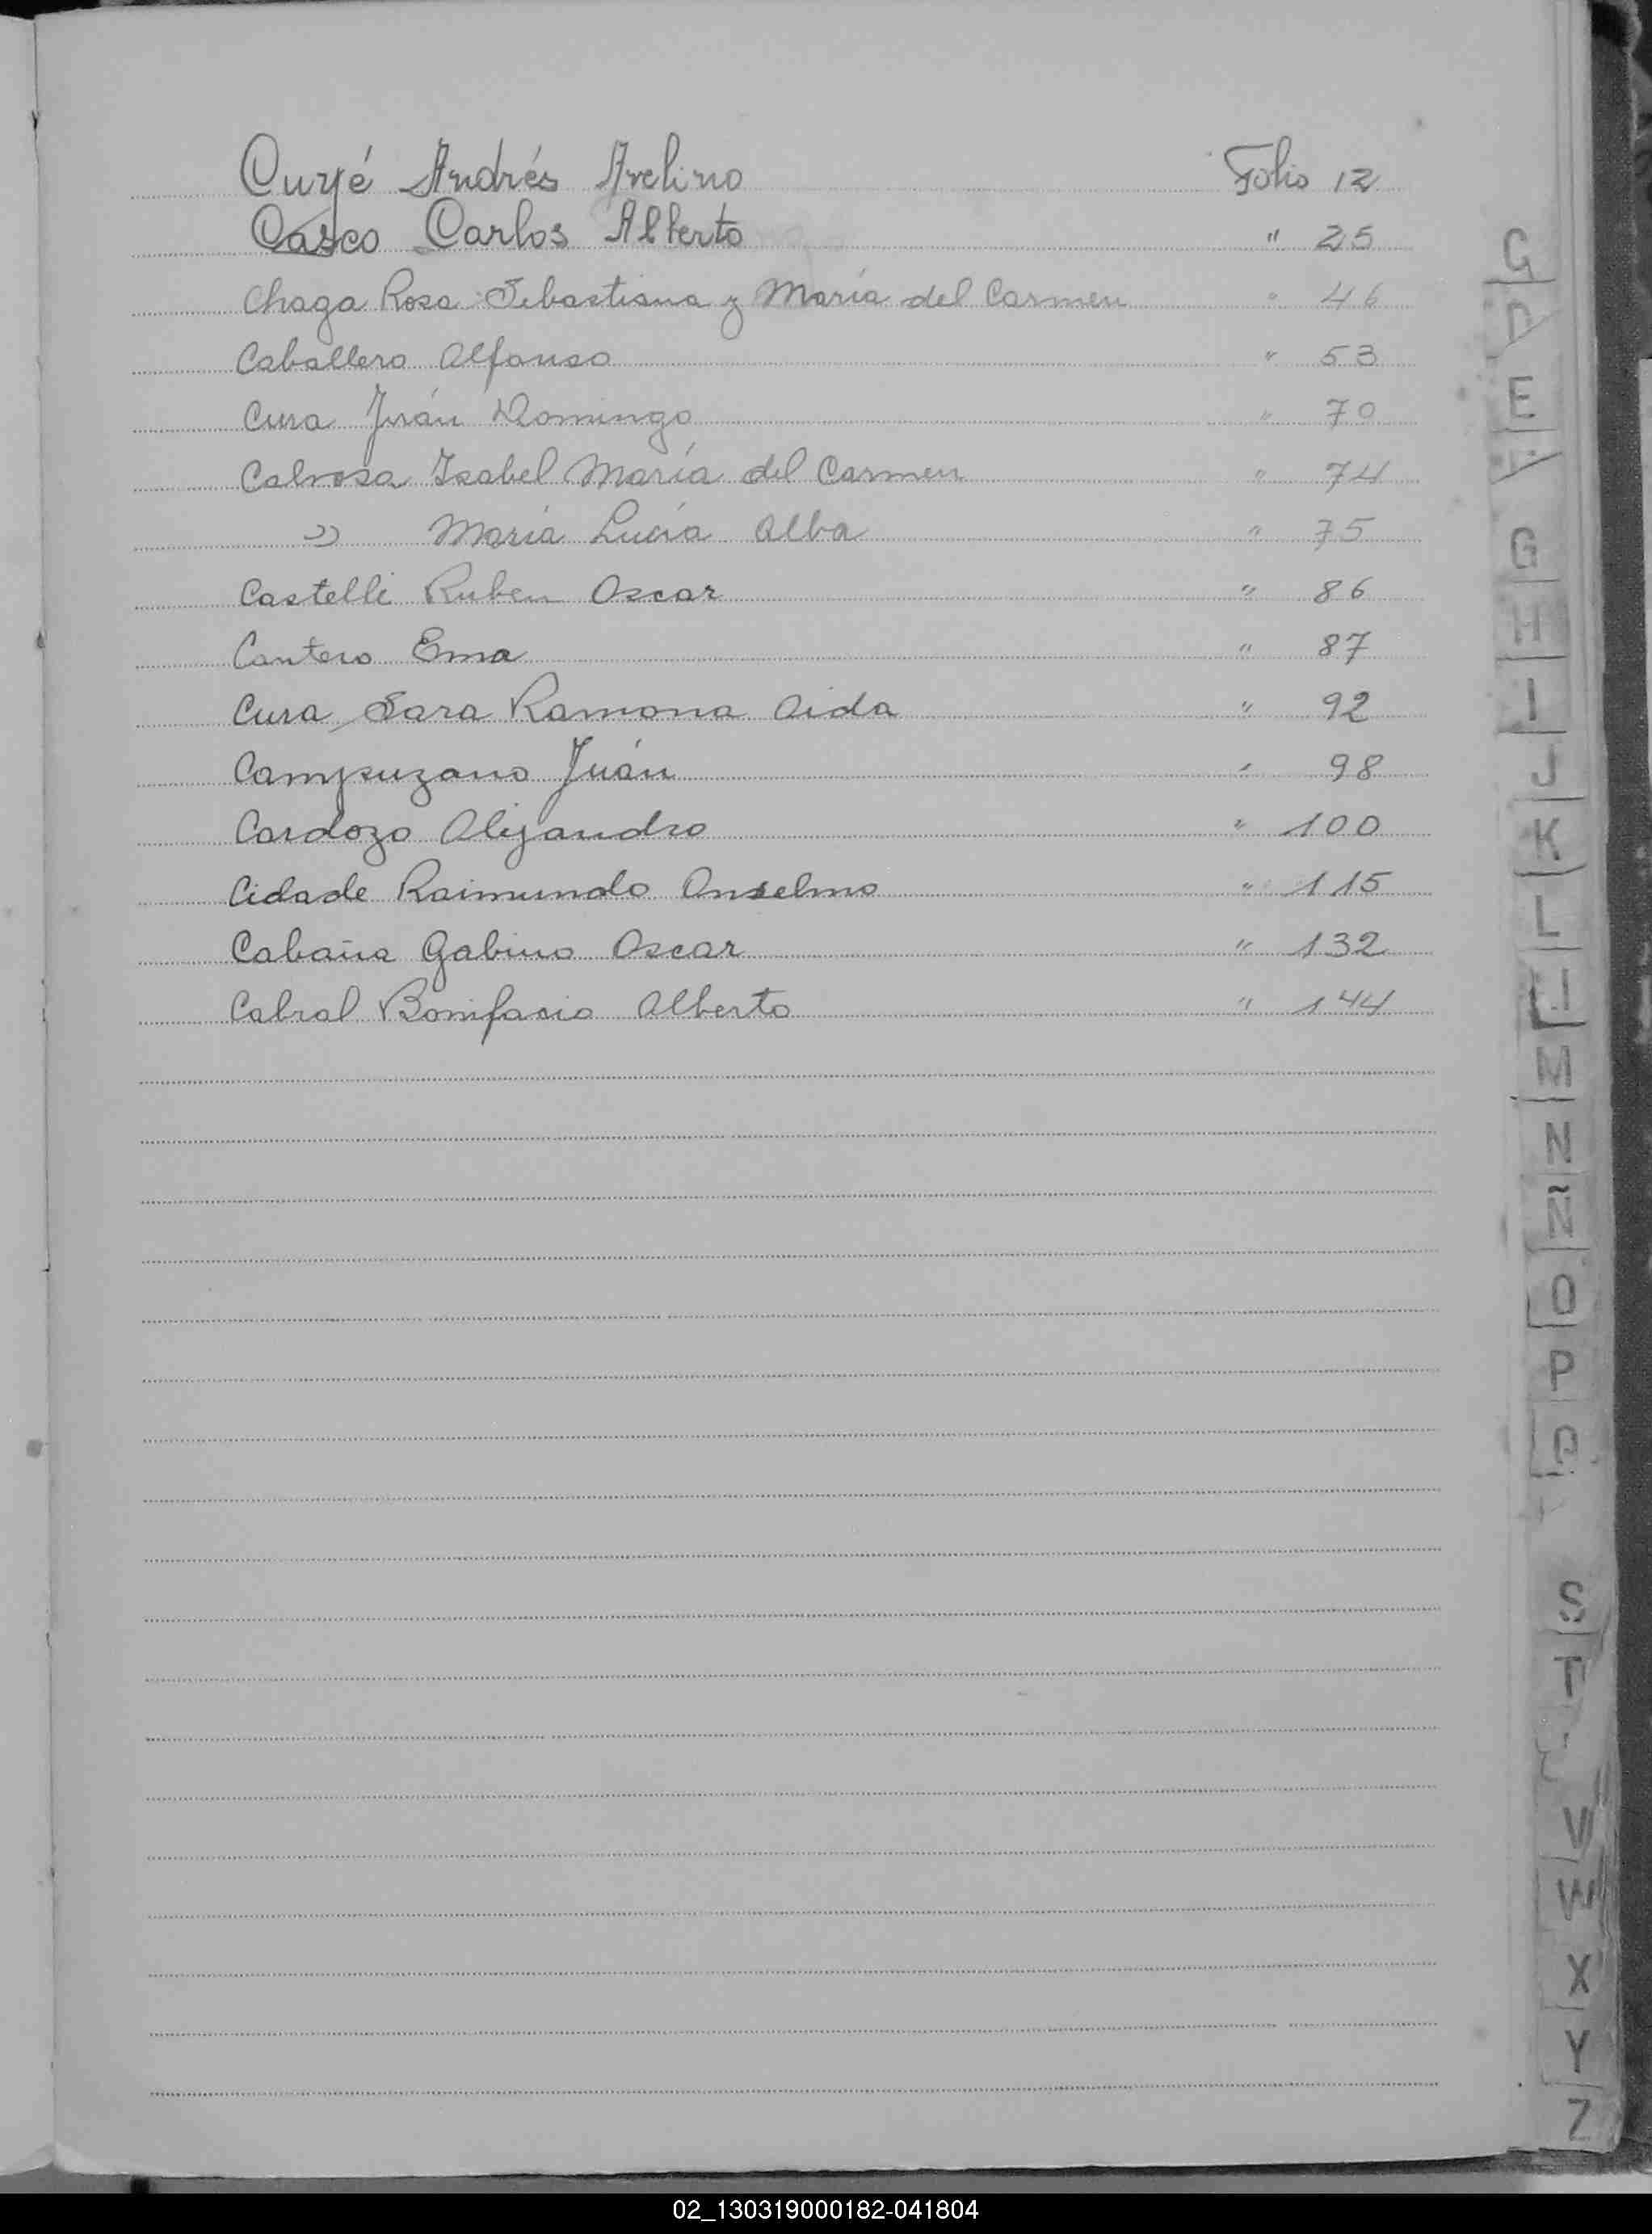 Cuyé Andrés Avelino Folio 12
Casco Carlos Alberto " 25
Chaga Rosa Sebastiana y María del Carmen " 46
Caballero Alfonso " 53
Cura Juán Domingo " 70
Calvosa Isabel María del Carmen " 74
" María Lucía Alba " 75
Castelli Ruben Oscar " 86
Cantero Ema " 87
Cura, Sara Ramona Aida " 92
Campuzano Juán " 98
Cardozo Alejandro " 100
Cidade Raimundo Anselmo " 115
Cabaña Gabino Oscar " 132
Cabral Bonifacio Alberto " 144
G
D
E
G
H
I
J
K
L
M
N
Ñ
O
P
Q
S
T
V
W
X
Y
Z
02_130319000182-041804